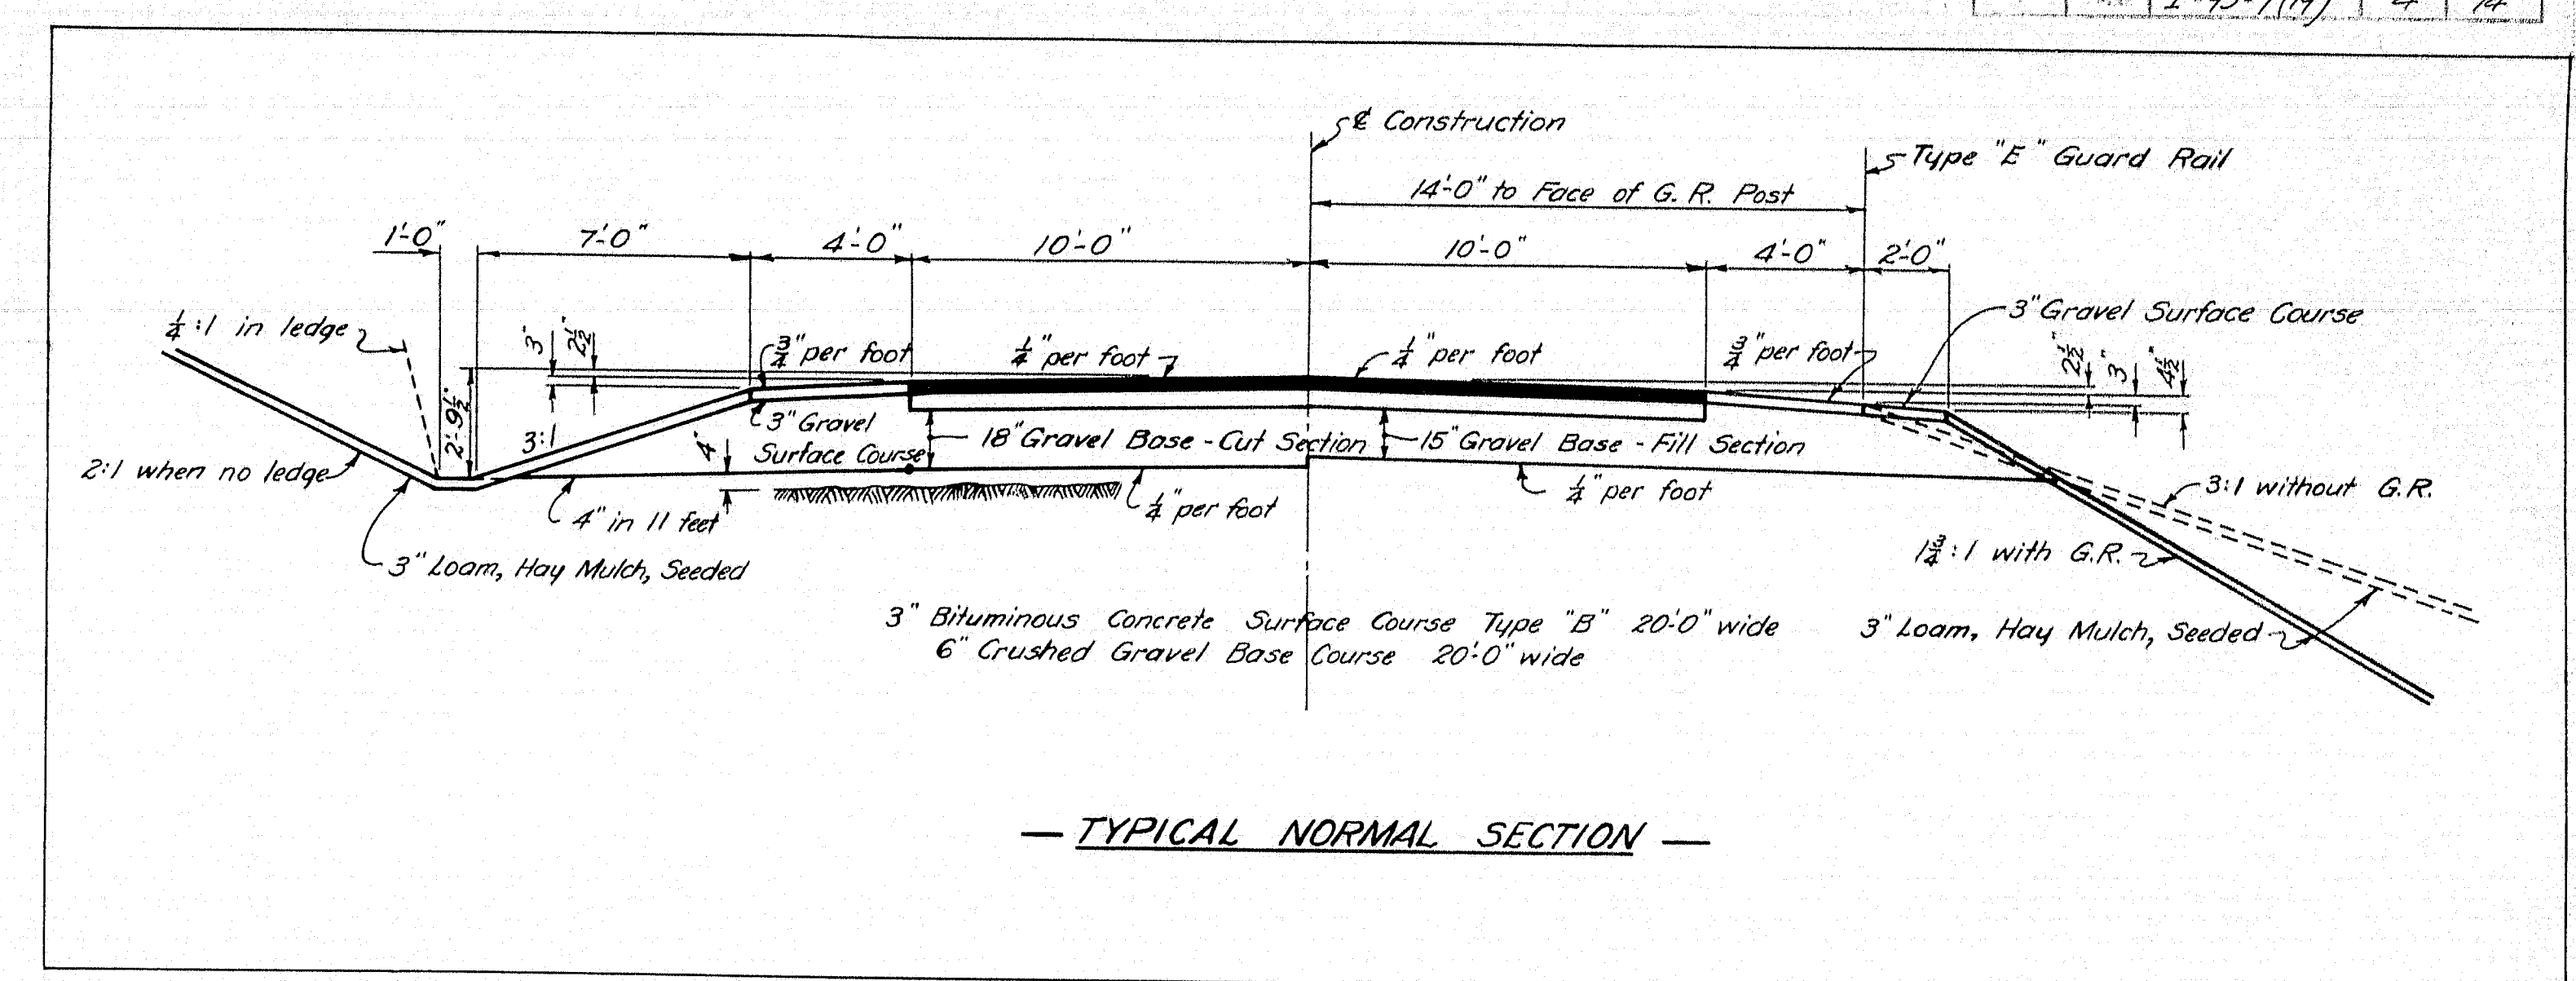 I-95-7(14) 4 14
℄ Construction
Type "E" Guard Rail
14'-0" to Face of G. R. Post
1'-0"
7'-0"
4'-0"
10'-0"
10'-0"
4'-0"
2'-0"
1/4:1 in ledge
3"
2 1/2"
3/4" per foot
1/4" per foot
1/4" per foot
3/4" per foot
3" Gravel Surface Course
2 1/2"
3"
4 1/2"
2'-9 1/2"
3:1
3" Gravel
Surface Course
4"
18" Gravel Base - Cut Section
15" Gravel Base - Fill Section
2:1 when no ledge
4" in 11 feet
1/4" per foot
1/4" per foot
3:1 without G.R.
3" Loam, Hay Mulch, Seeded
1 3/4:1 with G.R.
3" Bituminous Concrete Surface Course Type "B" 20'-0" wide
6" Crushed Gravel Base Course 20'-0" wide
3" Loam, Hay Mulch, Seeded
— TYPICAL NORMAL SECTION —